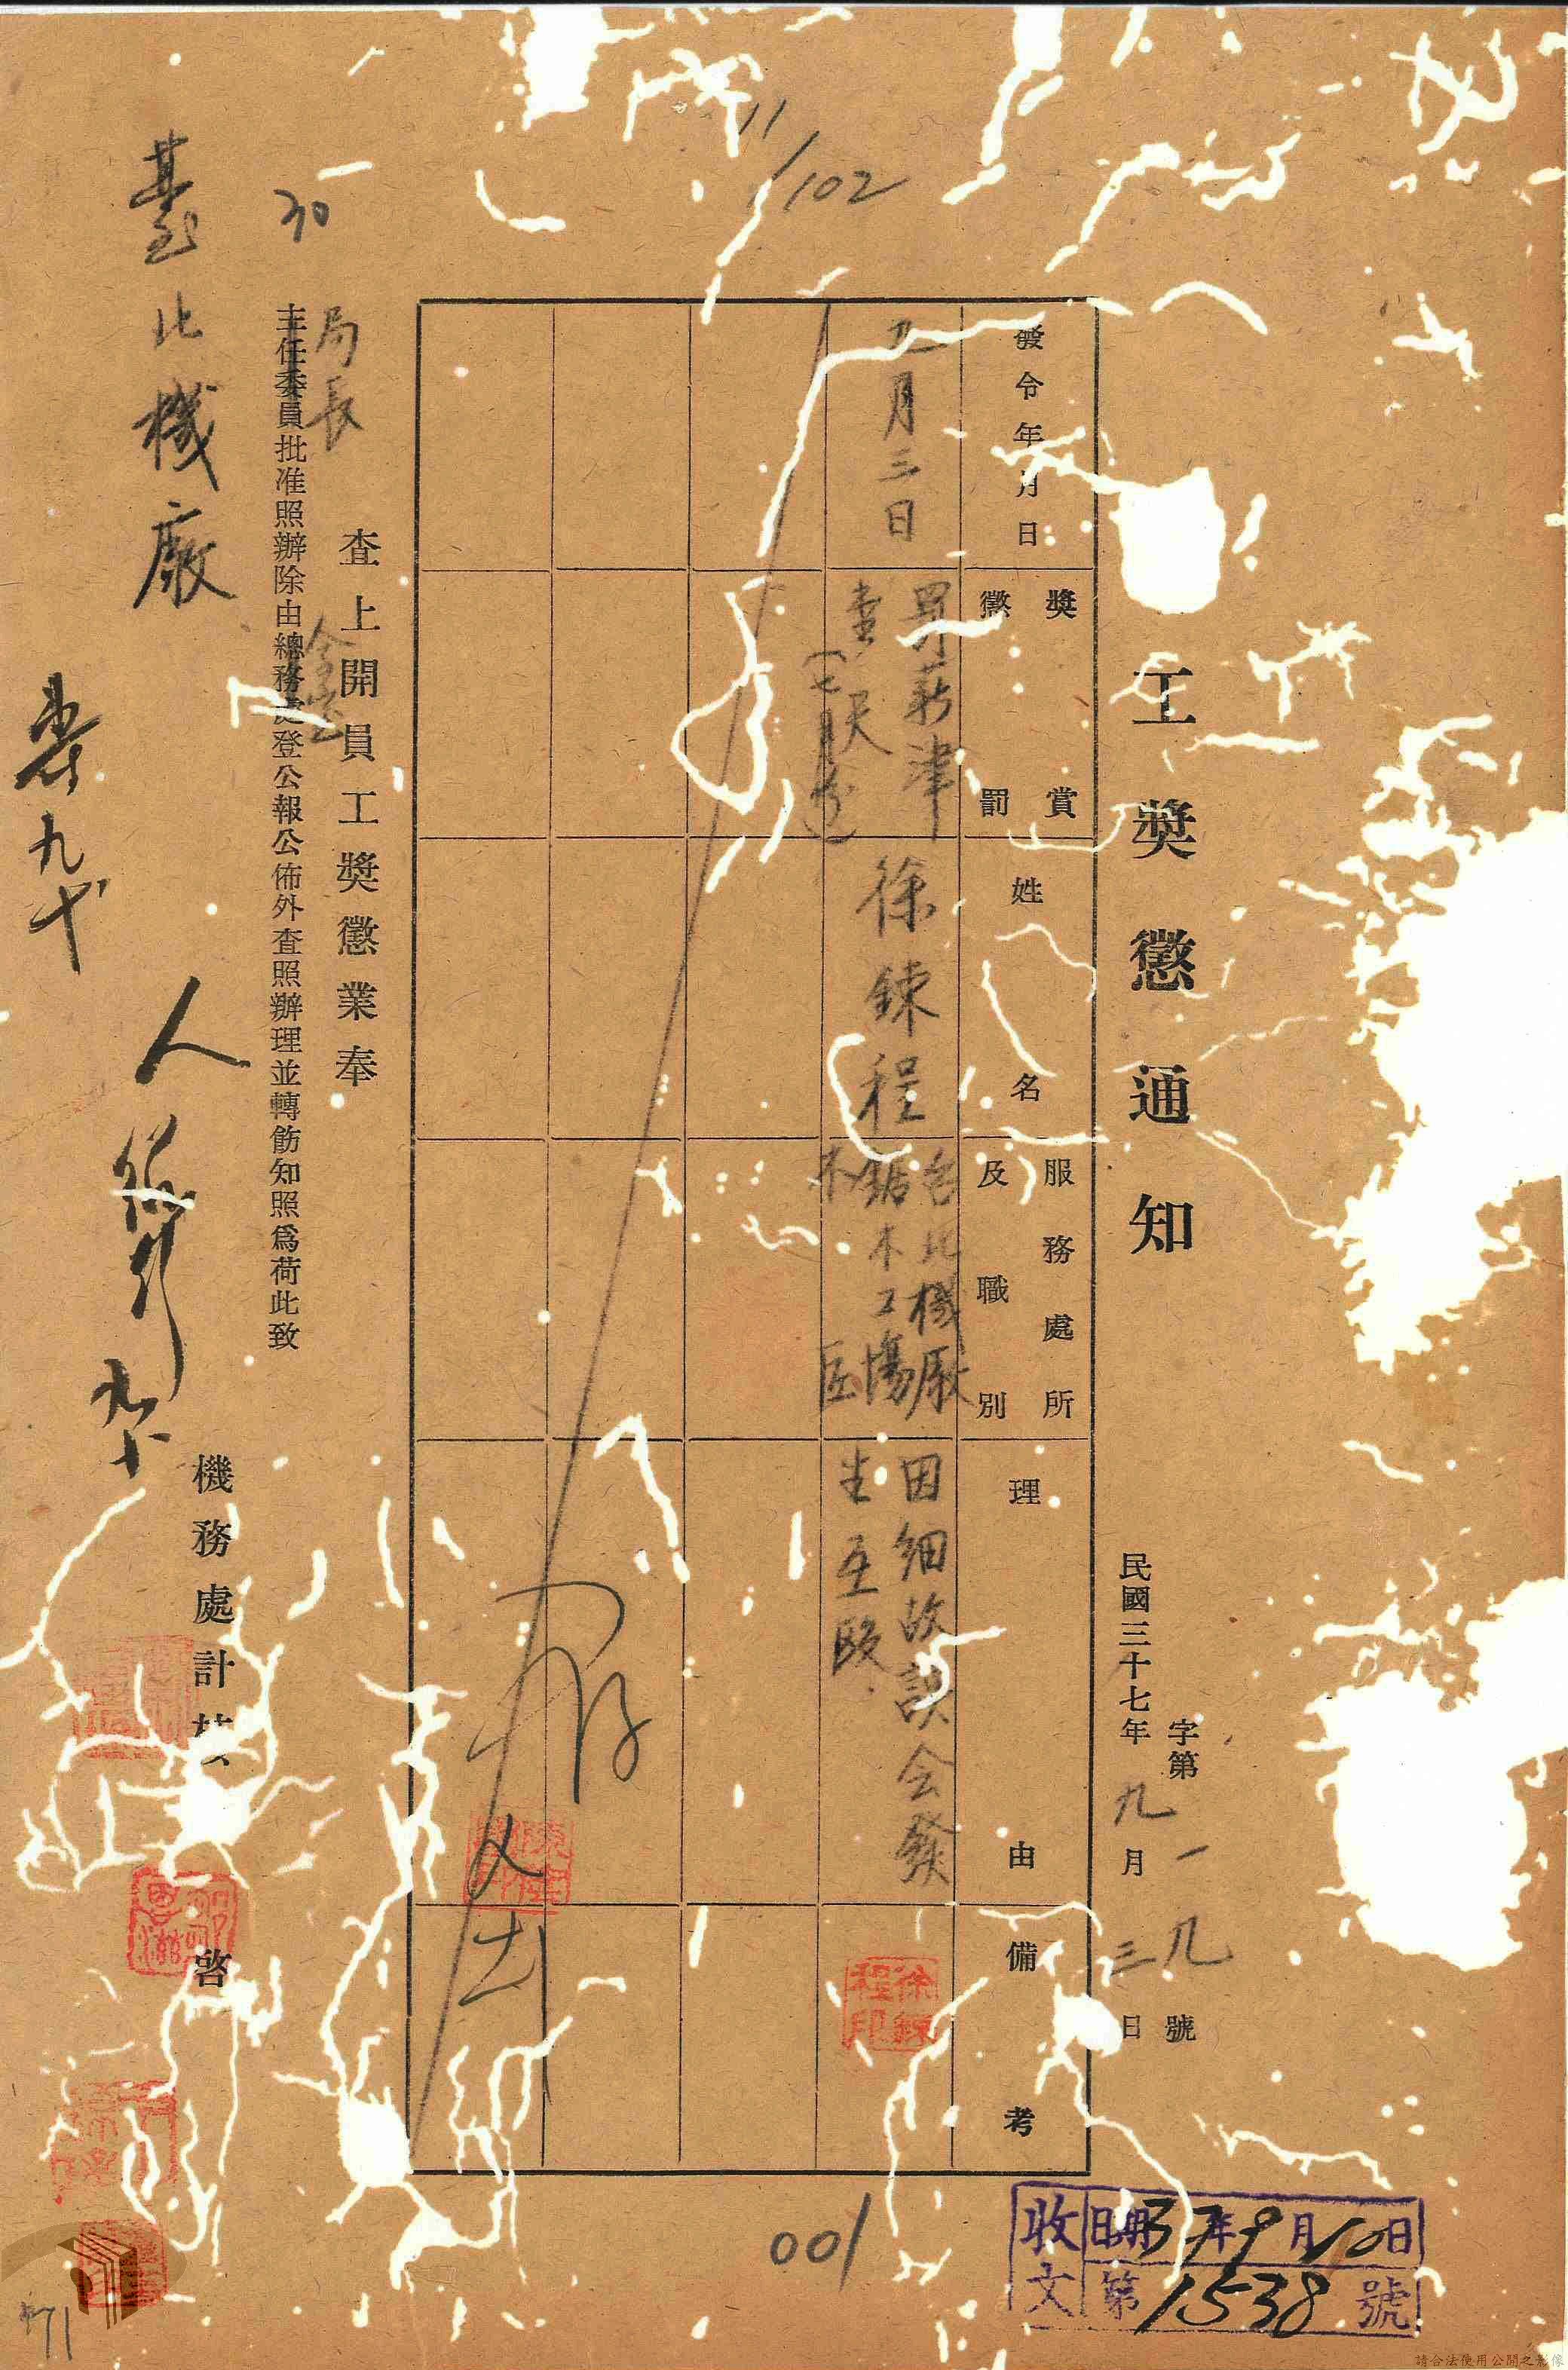 11/102
工獎懲通知
字第一九號
民國三十七年九月三日
發令年月日
獎賞
懲罰
姓名
服務處所
及職別
理由
備考
九月三日
罰薪津
壹天
徐鍊程
台北機廠
鋸木工場
因細故誤会發
生互毆
徐鍊程印
查上開員工獎懲業奉
局長
主任委員批准照辦除由總務處登公報公佈外查照辦理並轉飭知照為荷此致
30
臺北機廠
機務處計
啓
人
九十
收文
日期37年9月10日
第1538號
001
請合法使用公開之影像